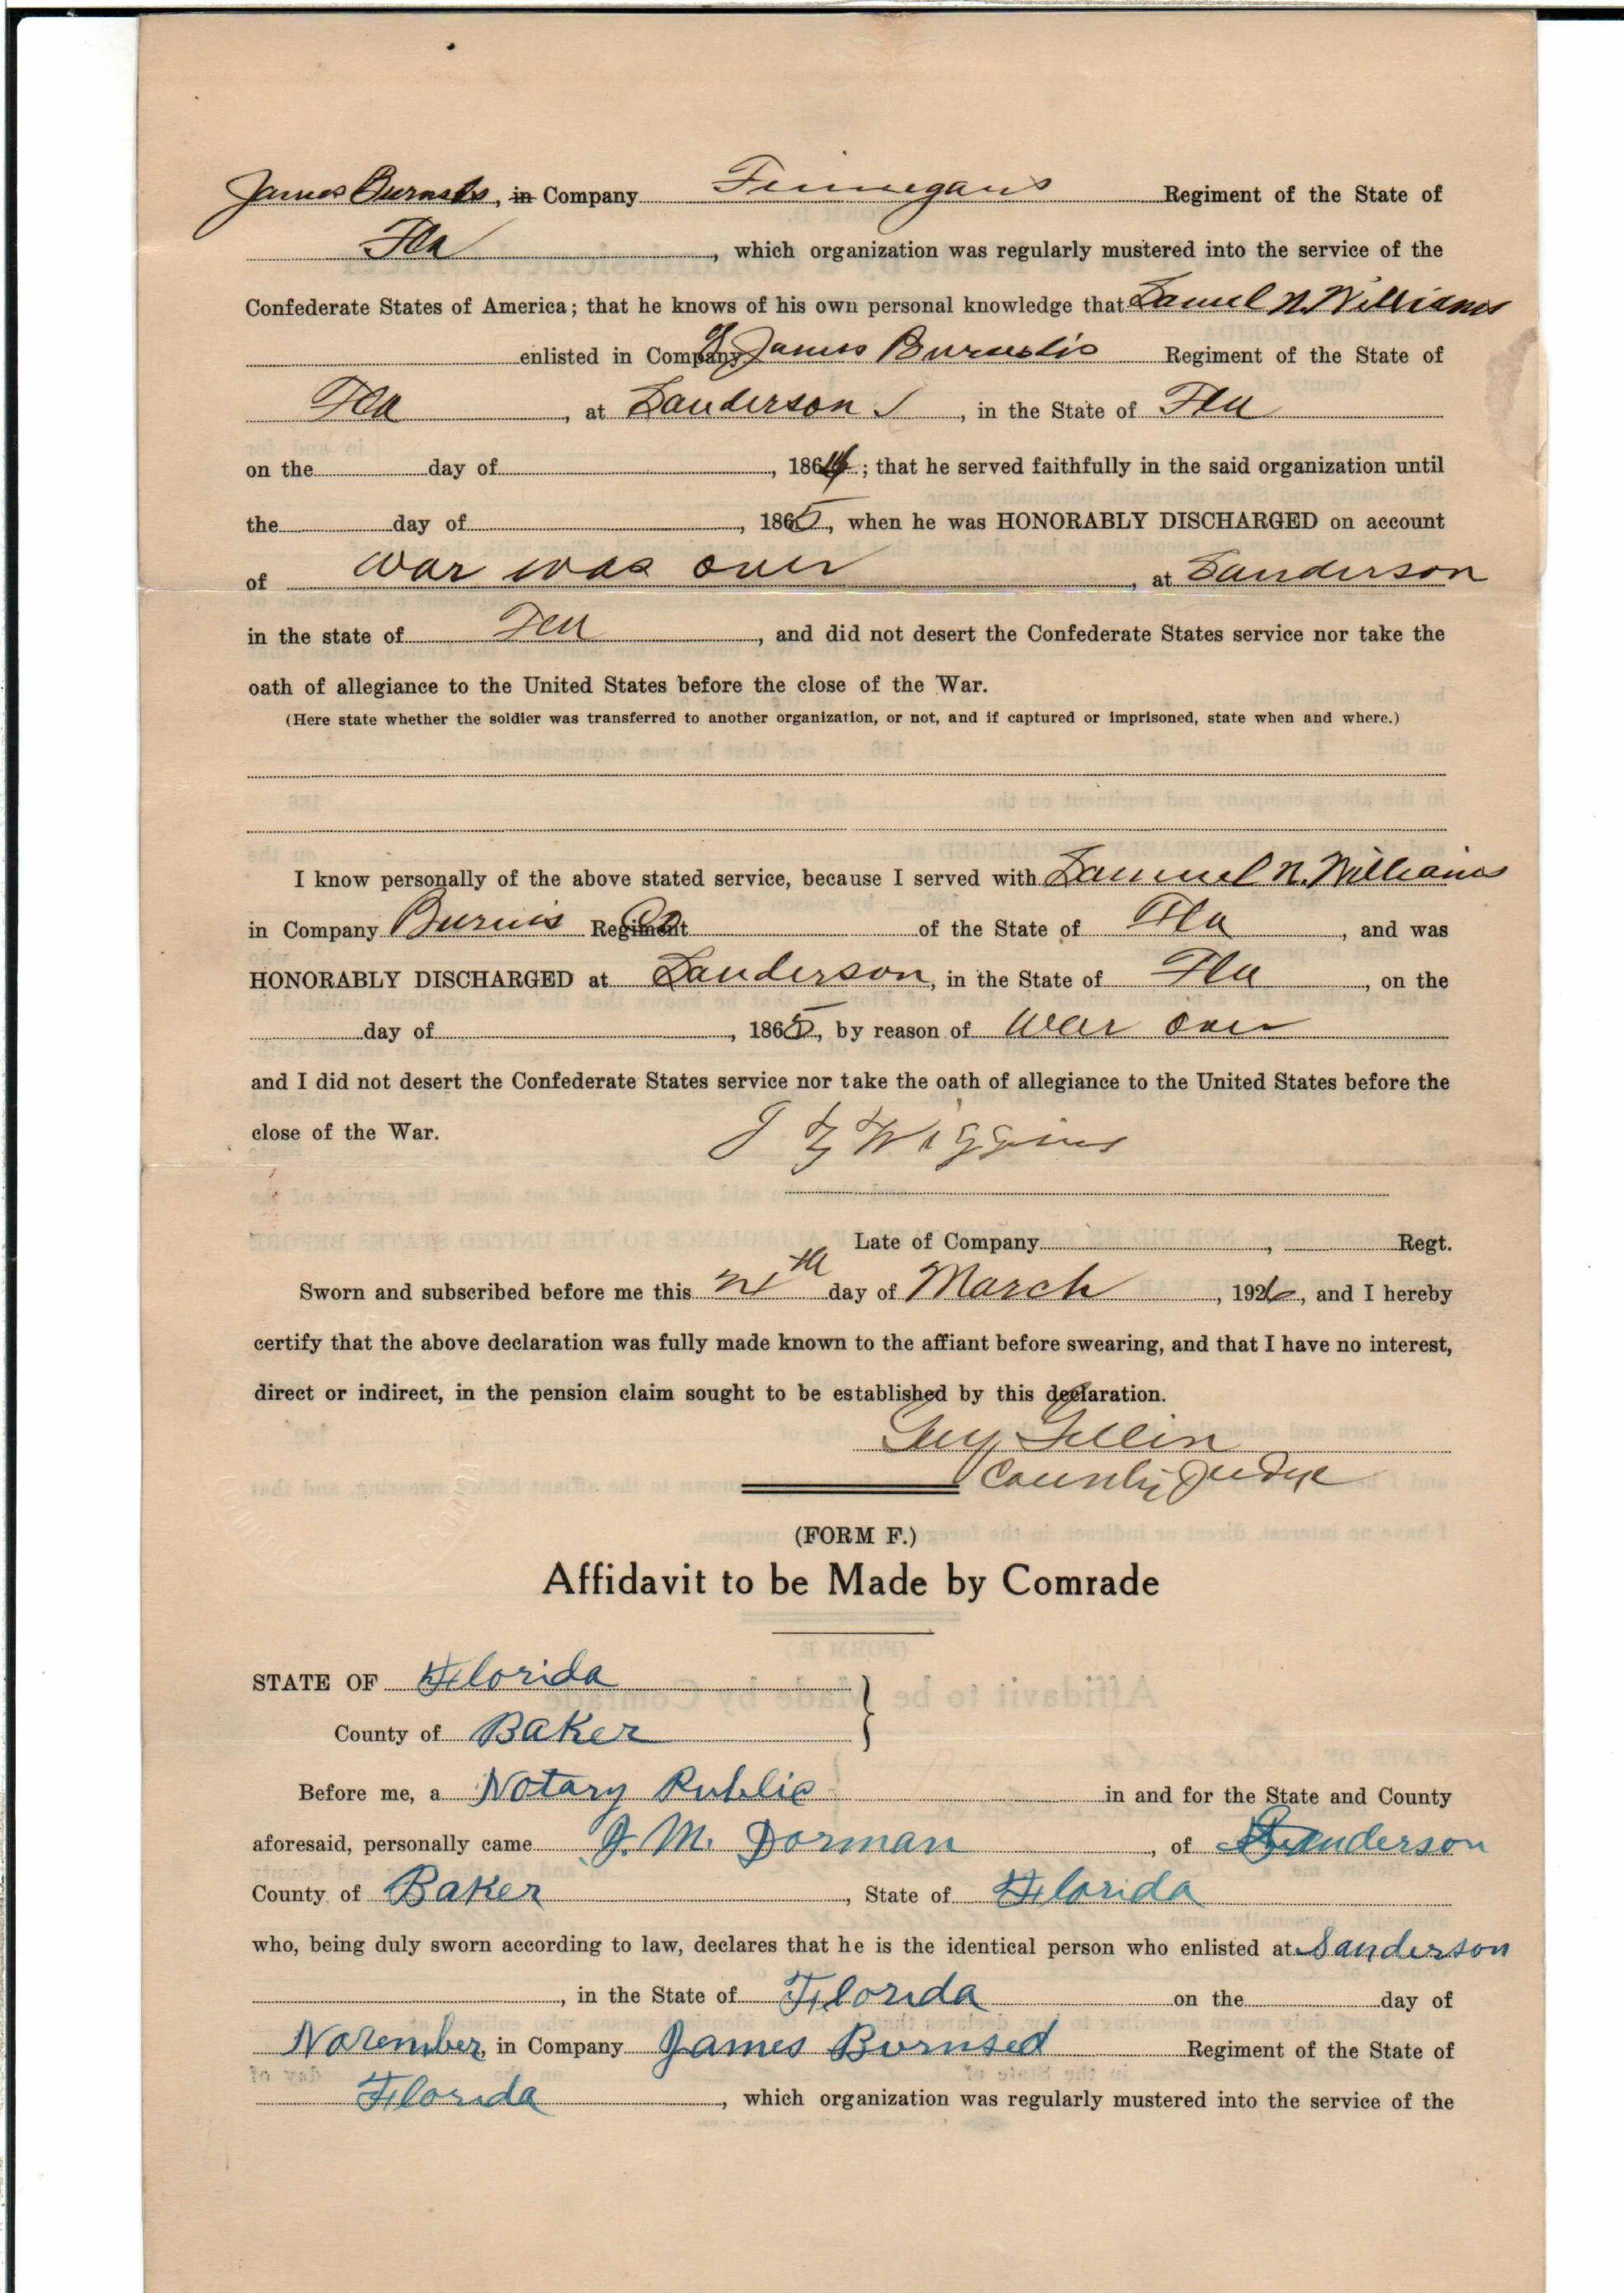 James Burnseds, in Company Finnegans Regiment of the State of
Fla, which organization was regularly mustered into the service of the
Confederate States of America; that he knows of his own personal knowledge that Samuel N. Williams
enlisted in Company James Regiment of the State of
Fla, at Sanderson, in the State of Fla
on the day of, 1864; that he served faithfully in the said organization until
the day of, 1865, when he was HONORABLY DISCHARGED on account
of war was over, at Sanderson
in the state of Fla, and did not desert the Confederate States service nor take the
oath of allegiance to the United States before the close of the War.
(Here state whether the soldier was transferred to another organization, or not, and if captured or imprisoned, state when and where.)
I know personally of the above stated service, because I served with Sammuel N. Williams
in Company Regiment of the State of Fla, and was
HONORABLY DISCHARGED at Sanderson, in the State of Fla, on the
day of, 1865, by reason of War over
and I did not desert the Confederate States service nor take the oath of allegiance to the United States before the
close of the War.
Wiggins
Late of Company, Regt.
Sworn and subscribed before me this th day of March, 1926, and I hereby
certify that the above declaration was fully made known to the affiant before swearing, and that I have no interest,
direct or indirect, in the pension claim sought to be established by this declaration.
County Judge
(FORM F.)
Affidavit to be Made by Comrade
STATE OF Florida
County of Baker
Before me, a Notary Public in and for the State and County
aforesaid, personally came J. M. Dorman, of Sanderson
County of Baker, State of Florida
who, being duly sworn according to law, declares that he is the identical person who enlisted at Sanderson
, in the State of Florida on the day of
November, in Company James Burnsed Regiment of the State of
Florida, which organization was regularly mustered into the service of the